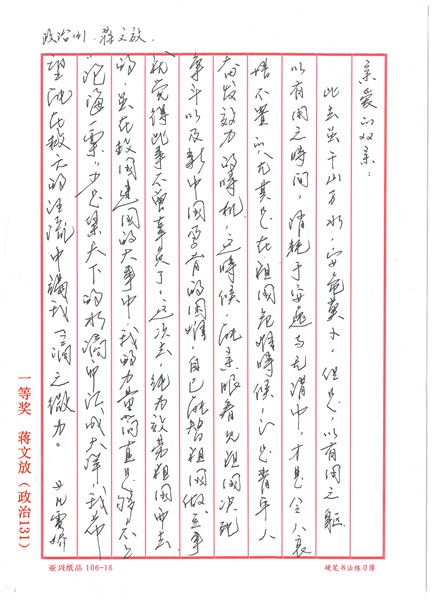 政治131 蒋文放
亲爱的双亲：
此去虽千山万水，安危莫卜，但是，以有用之躯
以有用之时间，消耗于安逸与无谓中，才是令人哀
惜不置的，尤其是在祖国危难时候，正是青年人
奋发效力的时机，这时候，能亲眼看见祖国决死
争斗以及新中国孕育的困难，自己能替祖国做点事
就觉得此事不曾辜负了，这次去，纯为效劳祖国而去
的，虽在救国建国的大事中，我的力量简直是够不上
“沧海一粟”可是集天下的水滴而汇成大洋，我希
望能在救亡的汪流中竭我一滴之微力。 女儿雪娇
一等奖 蒋文放（政治131）
亚兴纸品 106-16
硬笔书法练习簿